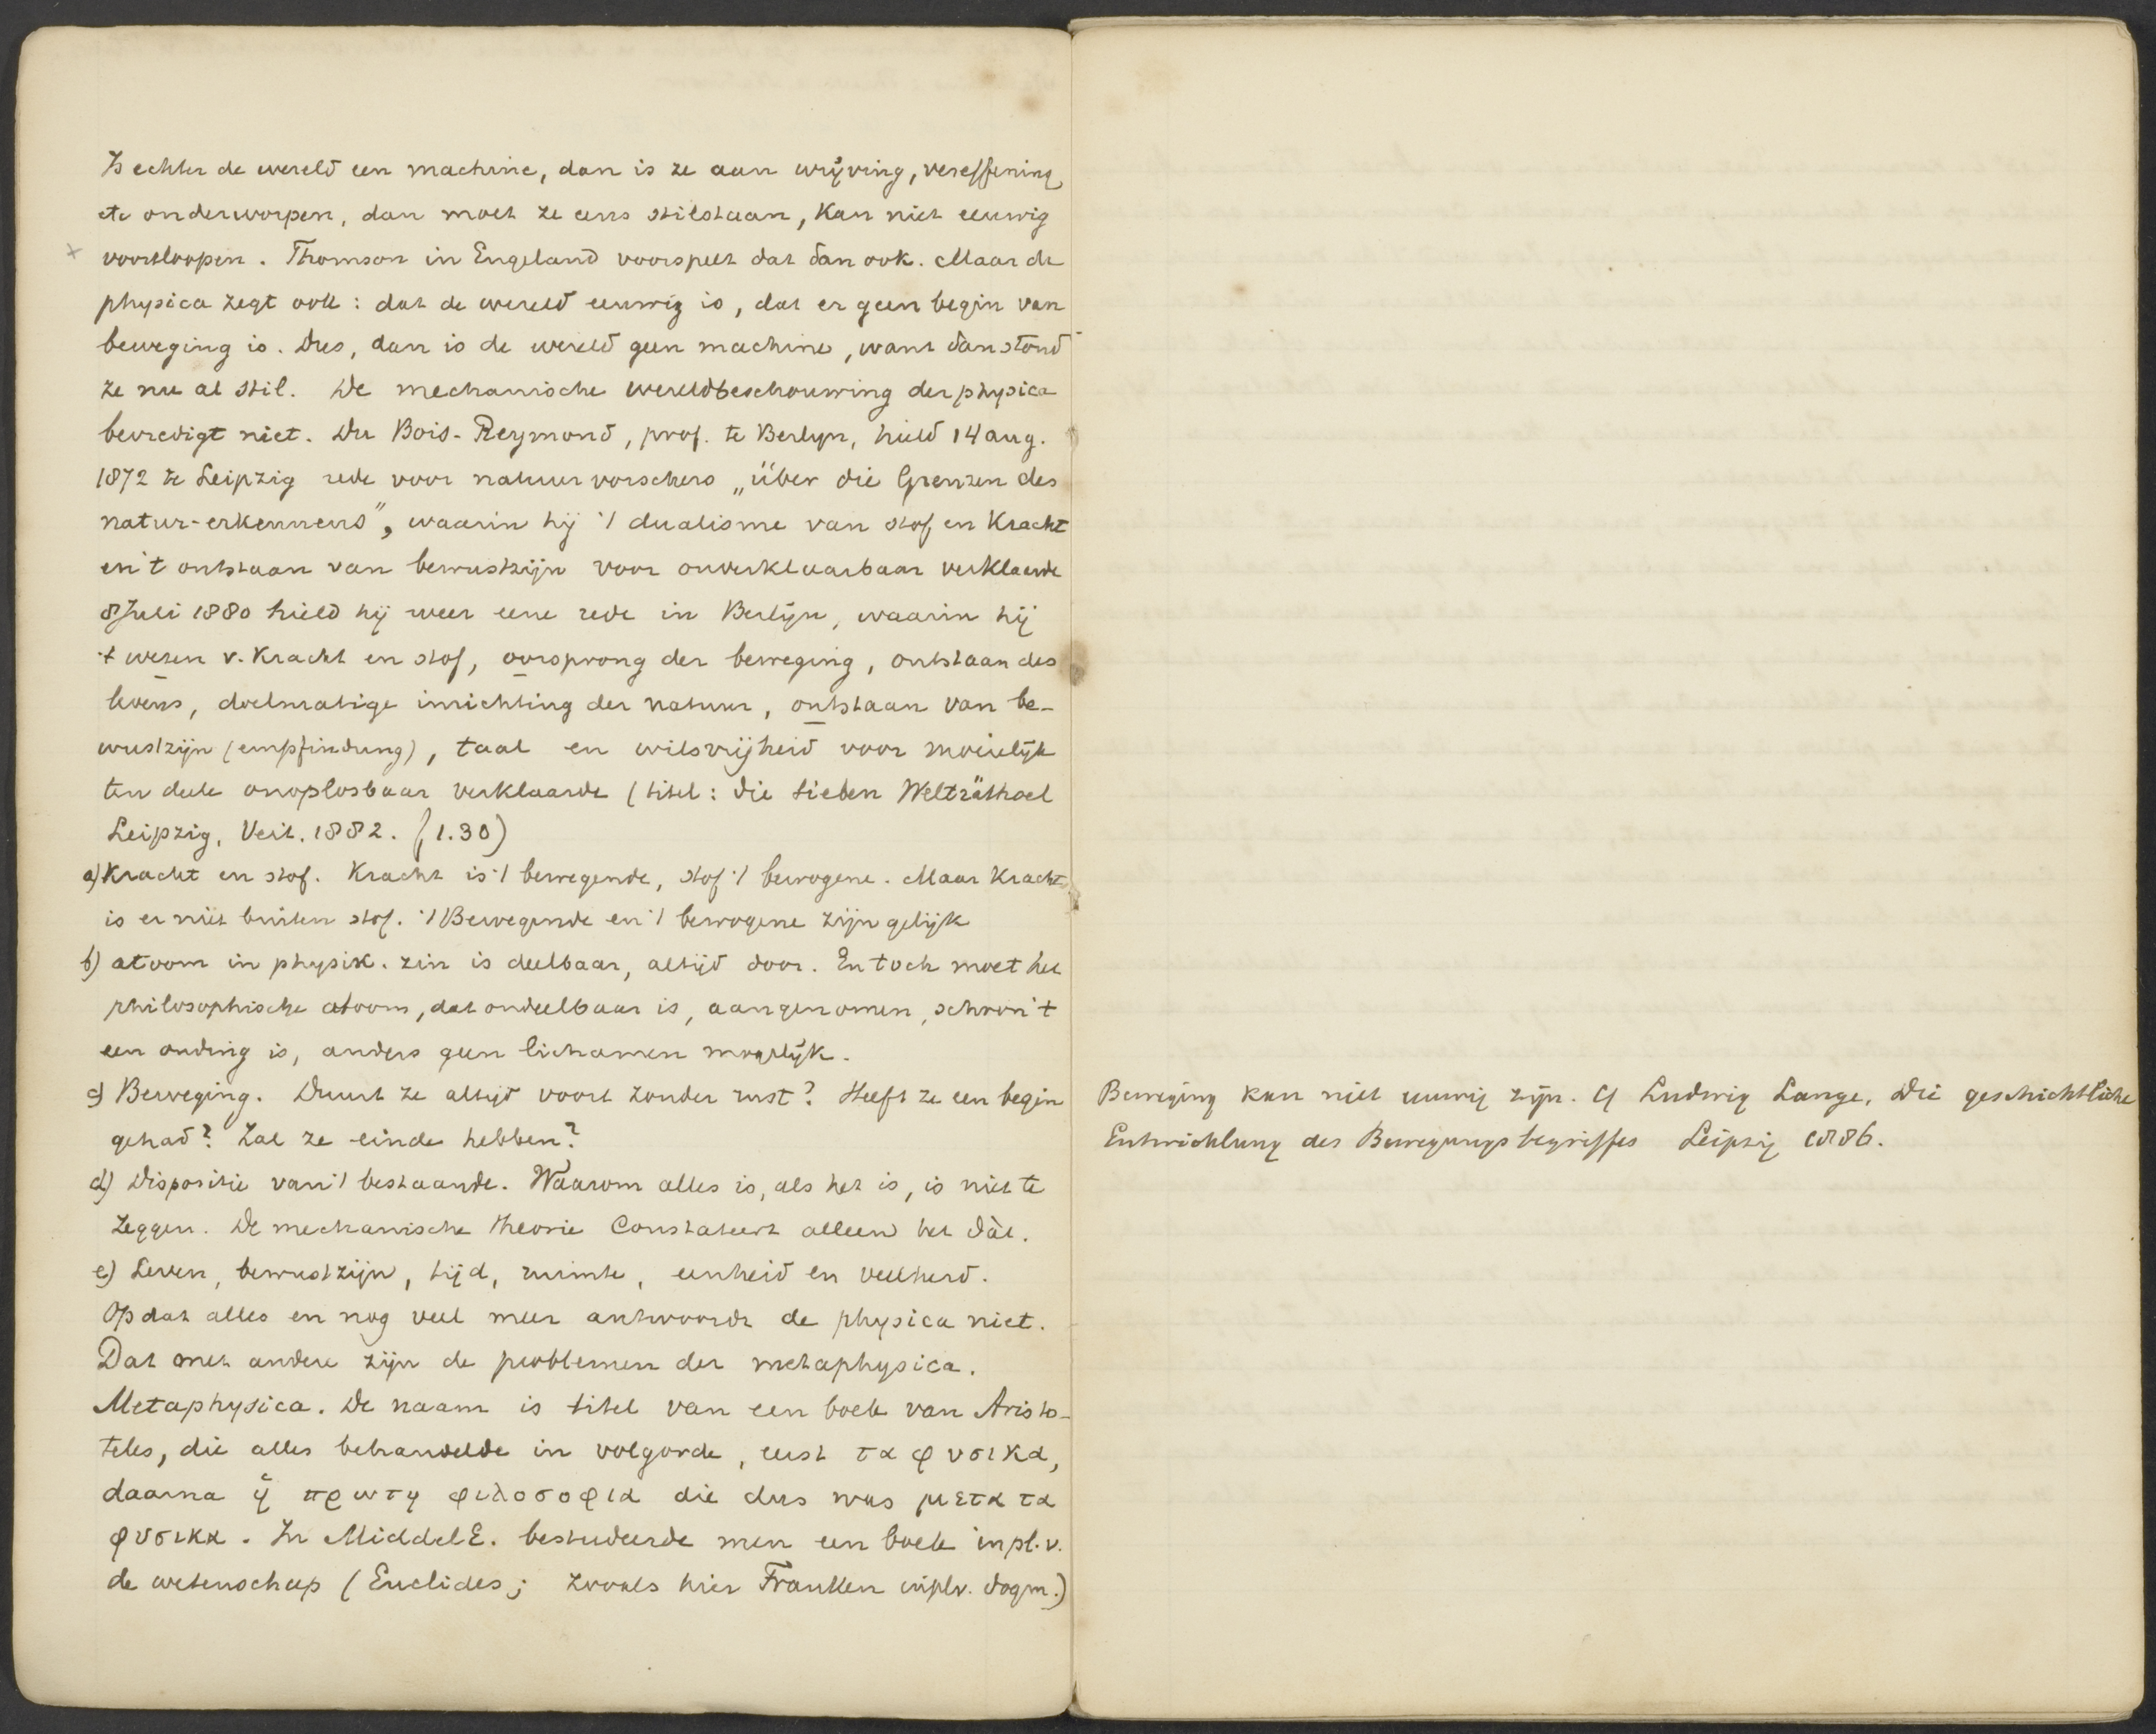 Is echter de wereld een machine, dan is ze aan wrijving, vereffening
etc onderworpen, dan moet ze eens stilstaan, kan niet eeuwig
× voortloopen. Thomson in Engeland voorspelt dat dan ook. Maar de
physica zegt ook: dat de wereld eeuwig is, dat er geen begin van
beweging is. Dus, dan is de wereld geen machine, want dan stond
ze nu al stil. De mechanische wereldbeschouwing der physica
bevredigt niet. Du Bois-Reymond, prof. te Berlyn, hield 14 aug.
1872 te Leipzig rede voor natuurvorschers „über die Grenzen des
natur-erkennens”, waarin hij 't dualisme van stof en kracht
en 't ontstaan van bewustzijn voor onverklaarbaar verklaarde
8 Juli 1880 hield hij weer eene rede in Berlijn, waarin hij
't wezen v. kracht en stof, oorsprong der beweging, ontstaan des
levens, doelmatige inrichting der natuur, ontstaan van be-
wustzijn (empfindung), taal en wilsvrijheid voor moeielijk
ten deele onoplosbaar verklaarde (titel: die sieben Welträthsel
Leipzig, Veit. 1882. (1.30)
a) Kracht en stof. Kracht is 't bewegende, stof 't bewogene. Maar kracht
is er niet buiten stof. 't Bewegende en 't bewogene zijn gelijk
b) atoom in physik. zin is deelbaar, altijd door. En toch moet het
philosophische atoom, dat ondeelbaar is, aangenomen, schoon 't
een onding is, anders geen lichamen mogelijk.
c) Beweging. Duurt ze altijd voort zonder rust? Heeft ze een begin
gehad? Zal ze einde hebben?
d) Dispositie van 't bestaande. Waarom alles is, als het is, is niet te
zeggen. De mechanische theorie Constateert alleen het dàt.
e) Leven, bewustzijn, tijd, ruimte, eenheid en veelheid.
Op dat alles en nog veel meer antwoordt de physica niet.
Dat met andere zijn de problemen der metaphysica.
Metaphysica. De naam is titel van een boek van Aristo-
teles, die alles behandelde in volgorde, eerst τα φυσικα,
daarna ἡ πρωτη φιλοσοφια die dus was μετα τα
φυσικα. In MiddelE. bestudeerde men een boek in pl. v.
de wetenschap (Euclides; zooals hier Franken inplv. dogm.)
Beweging kan niet eeuwig zijn. Cf Ludwig Lange, Die geschichtliche
Entwicklung des Bewegungsbegriffes Leipzig 1886.